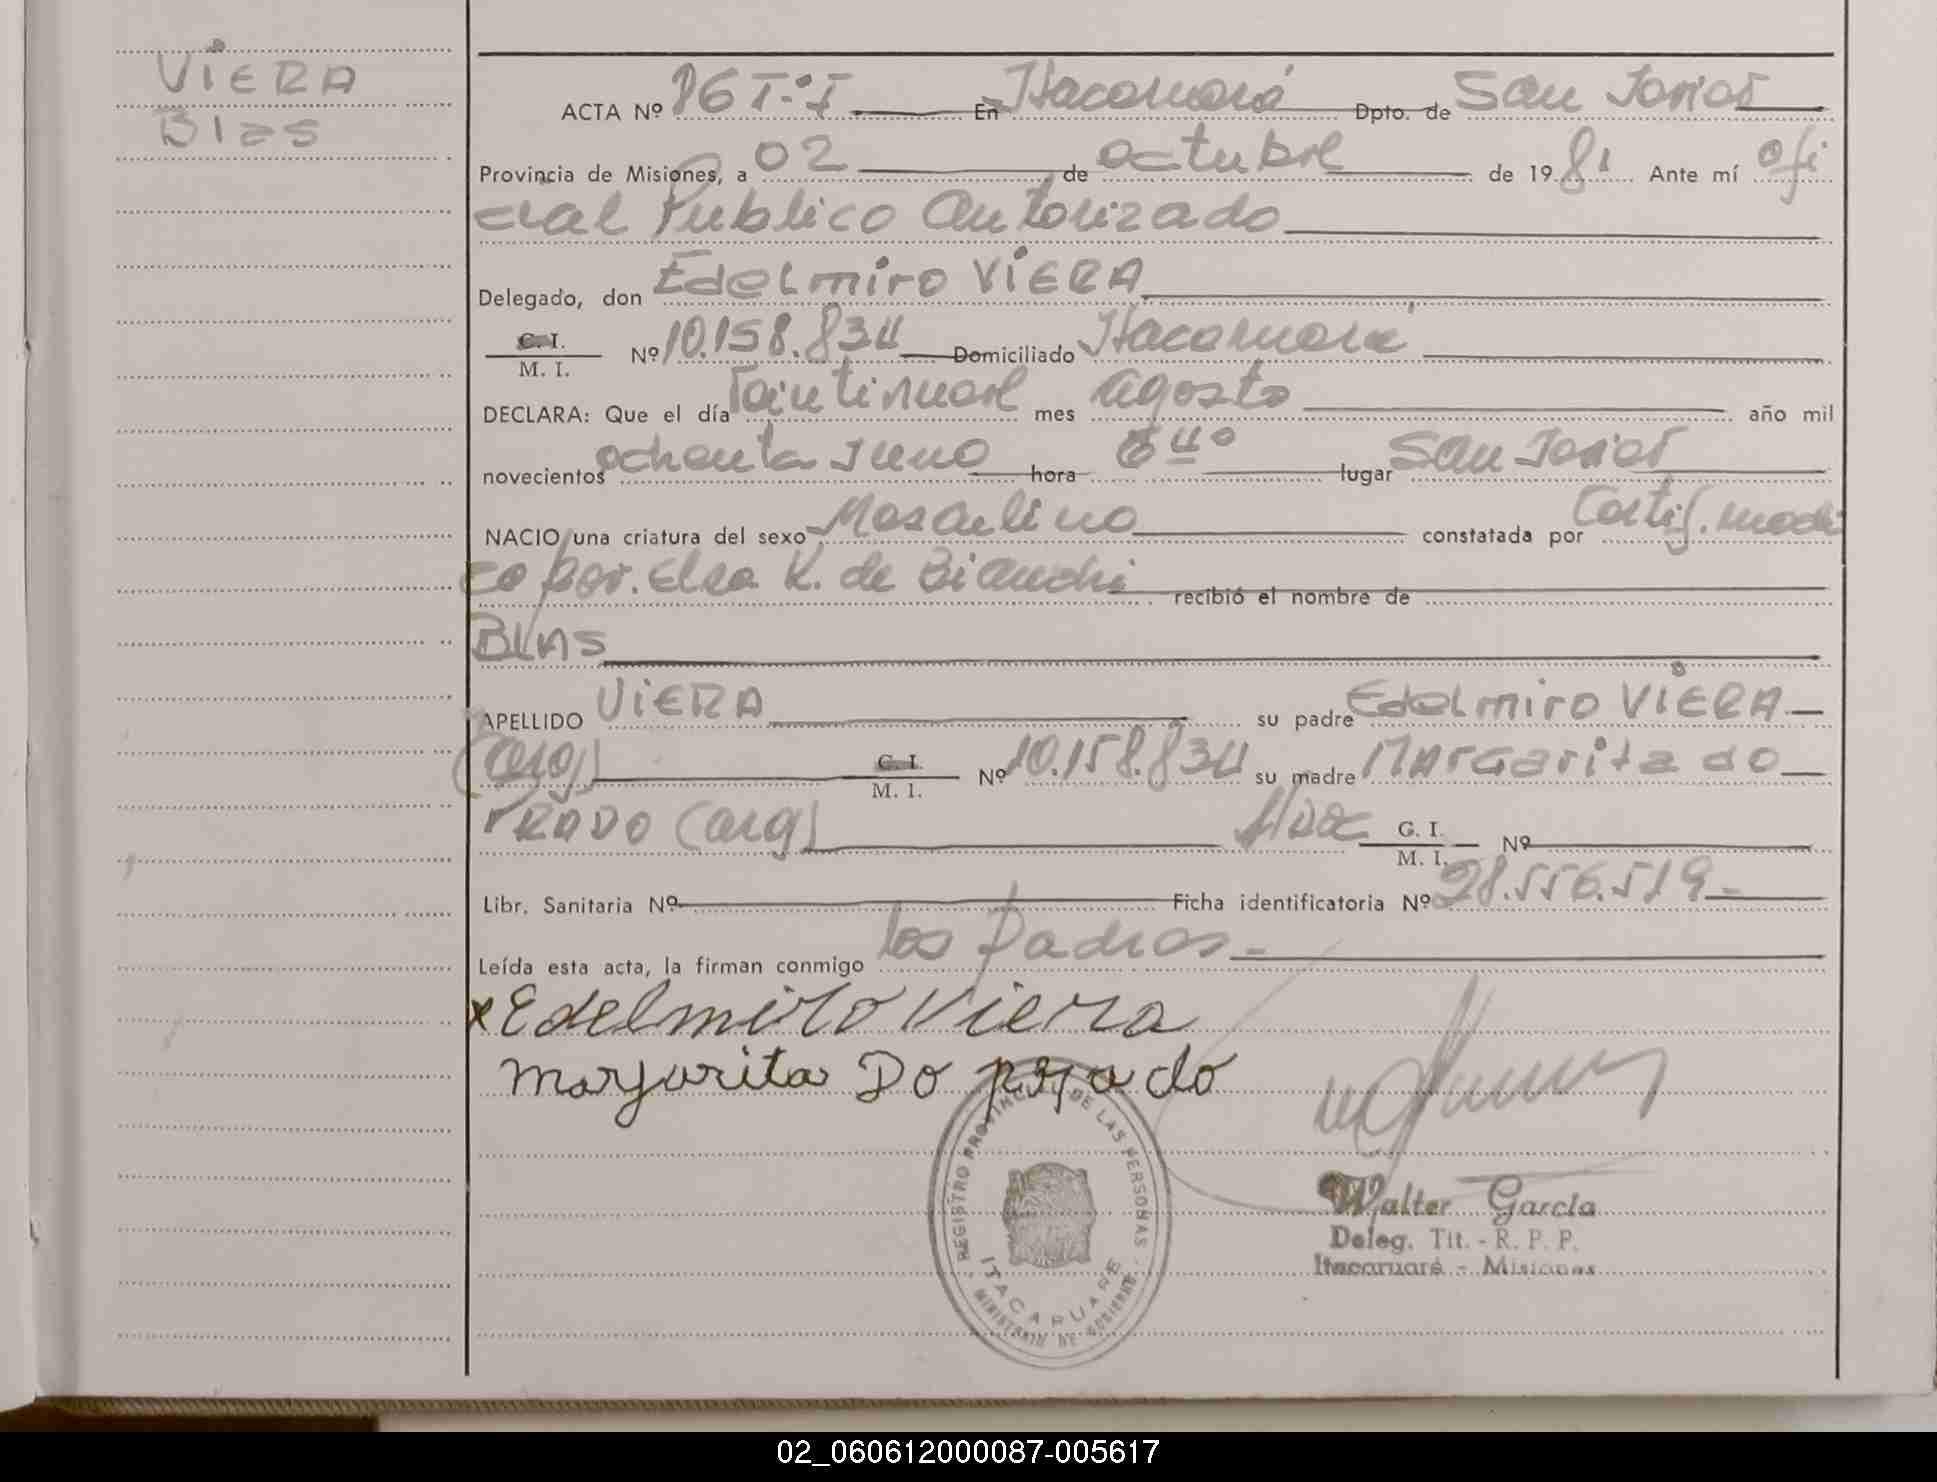 VIERA
Blas
ACTA Nº 86 T-I En Itacaruaré Dpto. de San Javier
Provincia de Misiones, a 02 de octubre de 1981 Ante mí ofi
cial Publico Autorizado
Delegado, don Edelmiro VIERA
C. I.
M. I. Nº 10.158.834 Domiciliado Itacaruaré
DECLARA: Que el día veintinueve mes agosto año mil
novecientos ochenta y uno hora lugar San Javier
NACIO una criatura del sexo Masculino constatada por Certif. medi
co por. Elsa K. de Bianchi recibió el nombre de
BLAS
APELLIDO VIERA su padre Edelmiro VIERA
(arg) C. I. M. I. Nº 10.158.834 su madre MArgarita do
PRADO (arg) C. I. M. I. Nº
Libr. Sanitaria Nº Ficha identificatoria Nº 28.556.519-
Leída esta acta, la firman conmigo los padres-
x Edelmiro Viera
Margarita Do prado
REGISTRO PROVINCIAL DE LAS PERSONAS
ITACARUARE
MINISTERIO DE GOBIERNO
Walter García
Deleg. Tit. - R. P. P.
Itacaruaré - Misiones
02_060612000087-005617